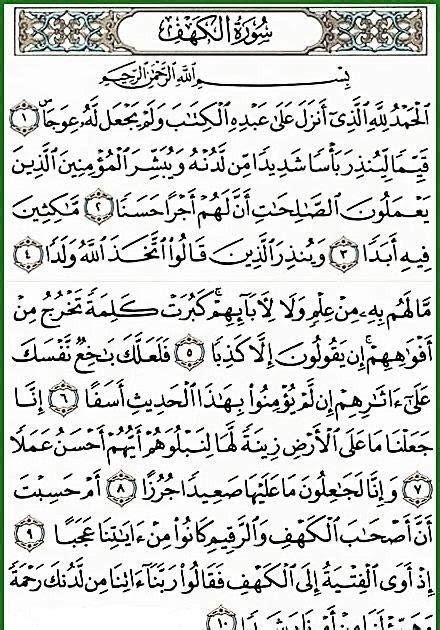 سُورَةُ الكَهْفِ
بِسْمِ اللَّهِ الرَّحْمَٰنِ الرَّحِيمِ
الْحَمْدُ لِلَّهِ الَّذِي أَنزَلَ عَلَىٰ عَبْدِهِ الْكِتَابَ وَلَمْ يَجْعَل لَّهُ عِوَجَا ۜ ١
قَيِّمًا لِّيُنذِرَ بَأْسًا شَدِيدًا مِّن لَّدُنْهُ وَيُبَشِّرَ الْمُؤْمِنِينَ الَّذِينَ
يَعْمَلُونَ الصَّالِحَاتِ أَنَّ لَهُمْ أَجْرًا حَسَنًا ٢ مَّاكِثِينَ
فِيهِ أَبَدًا ٣ وَيُنذِرَ الَّذِينَ قَالُوا اتَّخَذَ اللَّهُ وَلَدًا ٤
مَّا لَهُم بِهِ مِنْ عِلْمٍ وَلَا لِآبَائِهِمْ ۚ كَبُرَتْ كَلِمَةً تَخْرُجُ مِنْ
أَفْوَاهِهِمْ ۚ إِن يَقُولُونَ إِلَّا كَذِبًا ٥ فَلَعَلَّكَ بَاخِعٌ نَّفْسَكَ
عَلَىٰ آثَارِهِمْ إِن لَّمْ يُؤْمِنُوا بِهَٰذَا الْحَدِيثِ أَسَفًا ٦ إِنَّا
جَعَلْنَا مَا عَلَى الْأَرْضِ زِينَةً لَّهَا لِنَبْلُوَهُمْ أَيُّهُمْ أَحْسَنُ عَمَلًا
٧ وَإِنَّا لَجَاعِلُونَ مَا عَلَيْهَا صَعِيدًا جُرُزًا ٨ أَمْ حَسِبْتَ
أَنَّ أَصْحَابَ الْكَهْفِ وَالرَّقِيمِ كَانُوا مِنْ آيَاتِنَا عَجَبًا ٩
إِذْ أَوَى الْفِتْيَةُ إِلَى الْكَهْفِ فَقَالُوا رَبَّنَا آتِنَا مِن لَّدُنكَ رَحْمَةً
وَهَيِّئْ لَنَا مِنْ أَمْرِنَا رَشَدًا ١٠